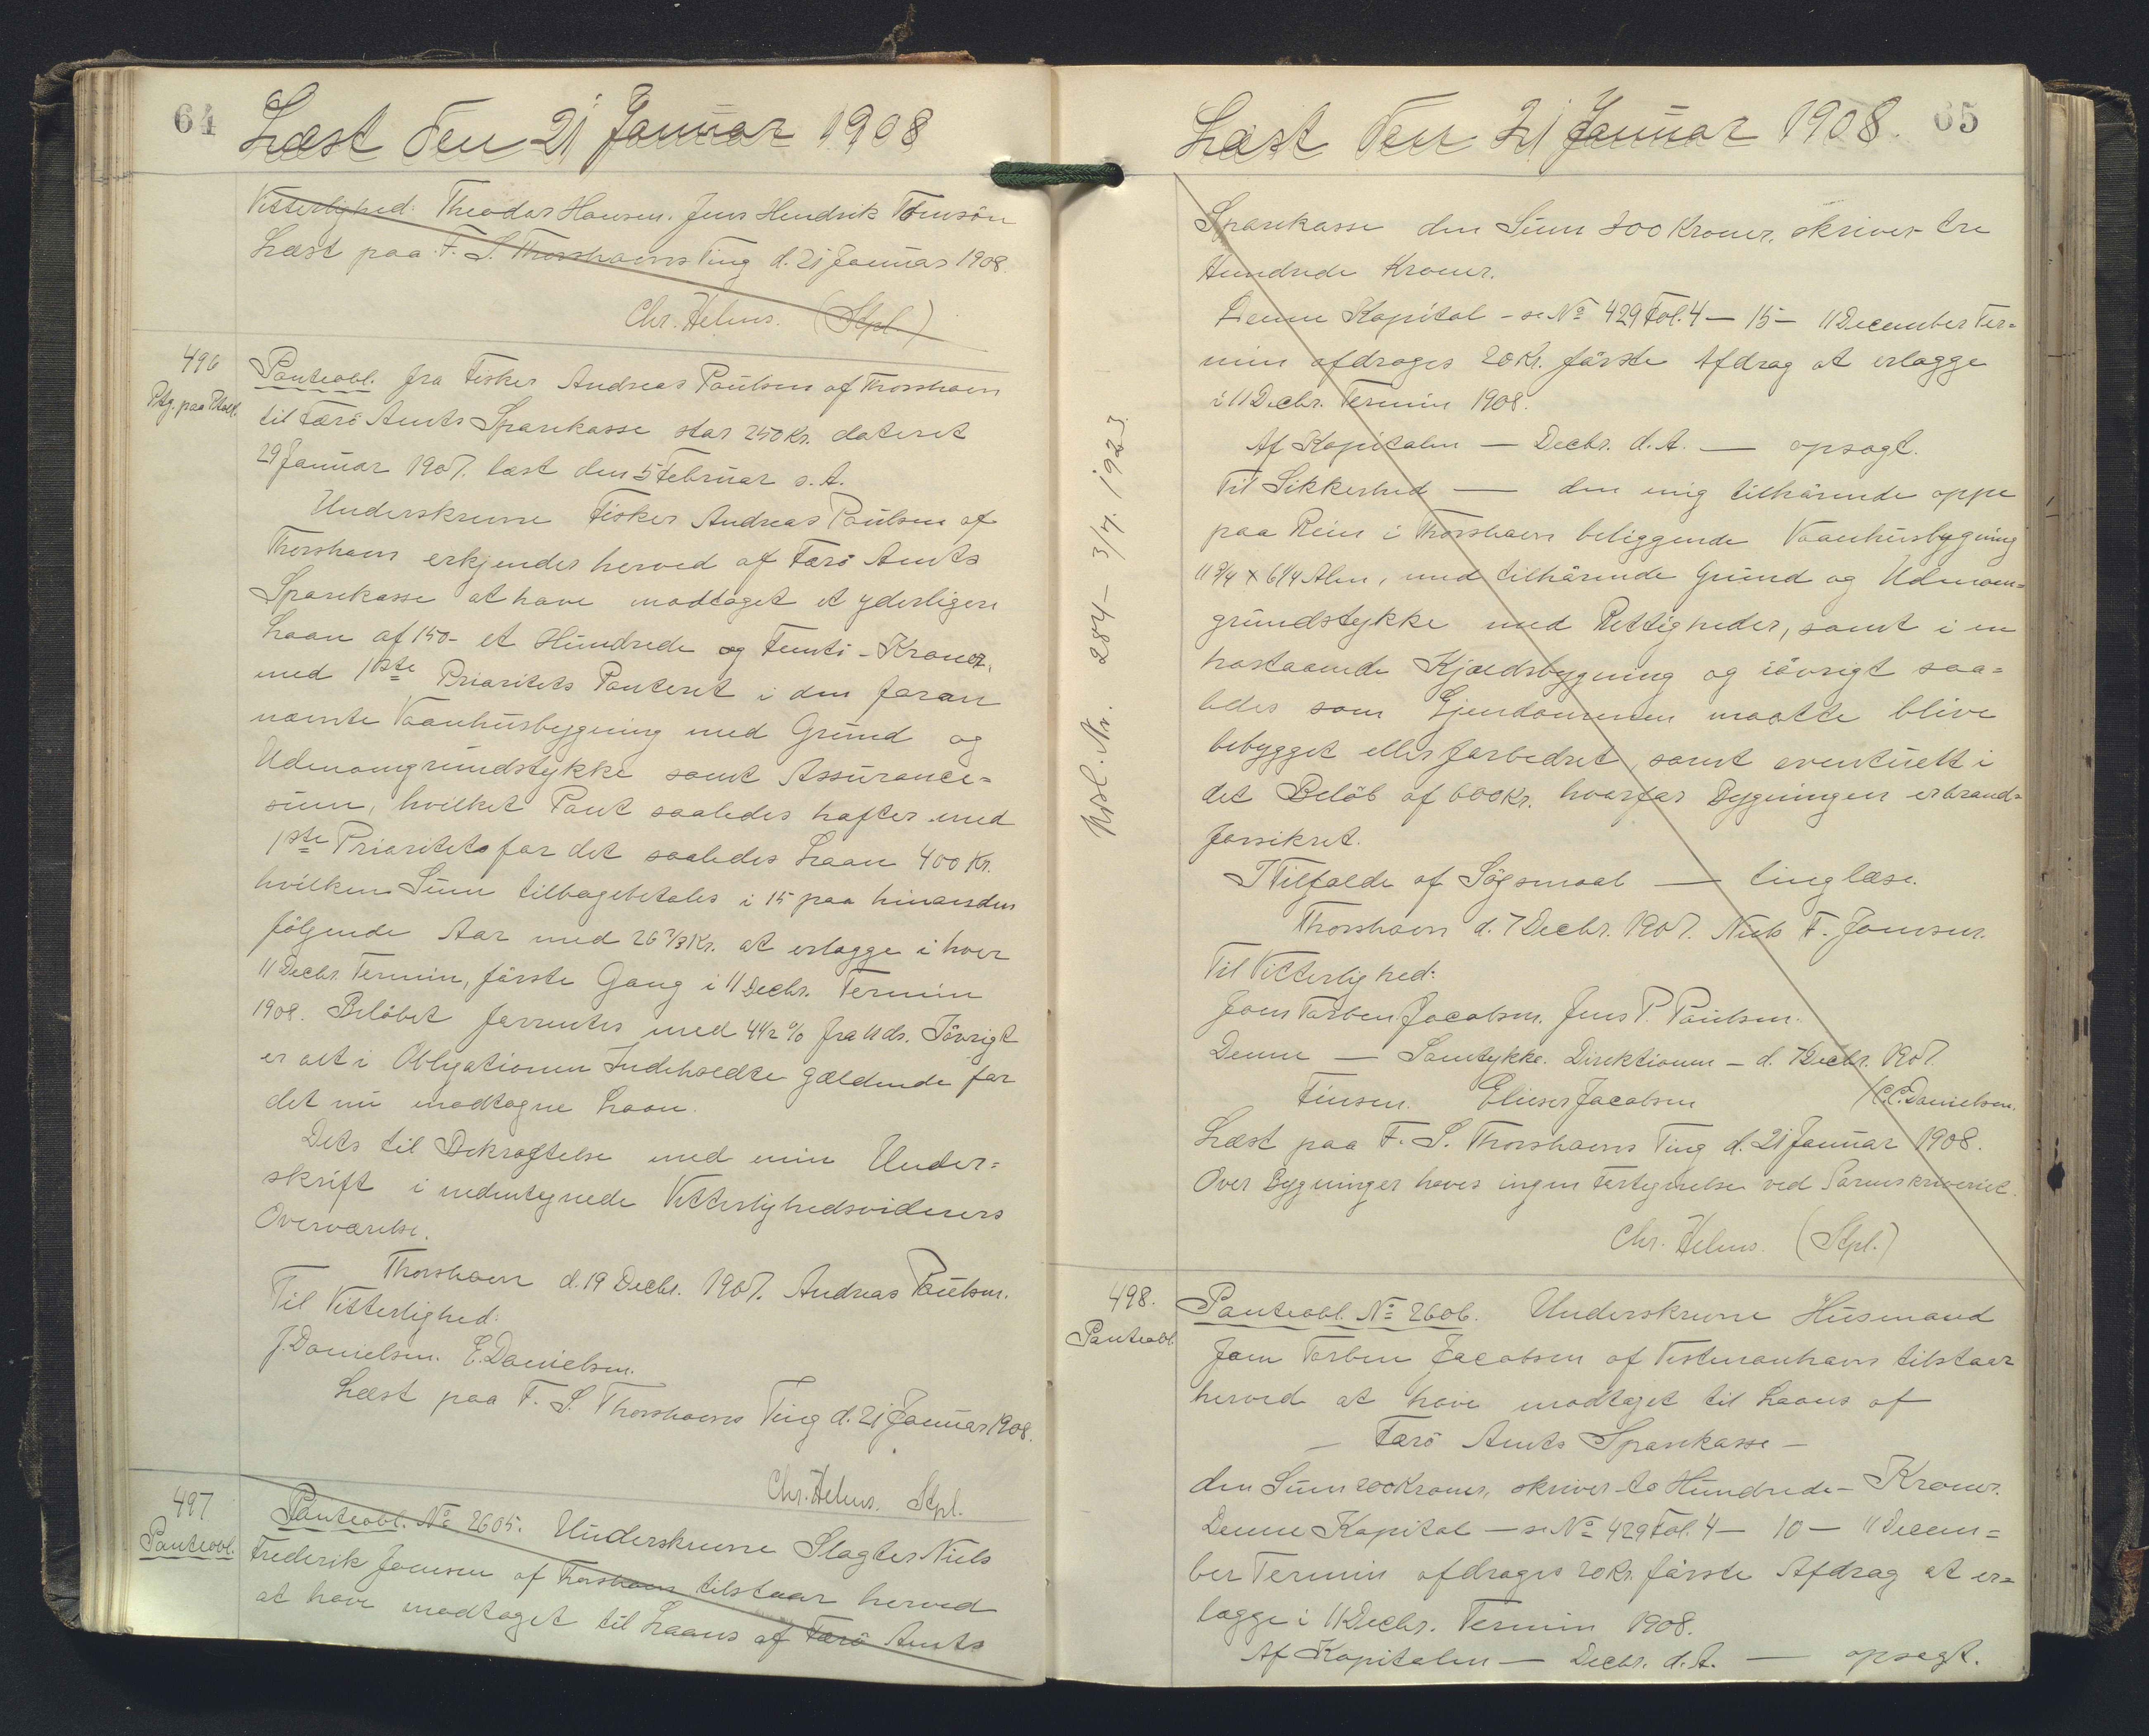 64
Læst den 21 Januar 1908
Vitterlighed: Theodor Hansen. Jens Hendrik Tomsön
Læst paa F. S. Thorshavns Ting d. 21 Januar 1908.
Chr. Helms. (Stpl.)
496
Ptg. paa
Panteobl. fra Fisker Andreas Paulsen af Thorshavn
til Færö Amts Sparekasse stor 250 Kr. dateret
29 Januar 1907. læst den 5 Februar s. A.
Underskrevne Fisker Andreas Paulsen af
Thorshavn erkjender herved af Færö Amts
Sparekasse at have modtaget et yderligere
Laan af 150 - et Hundrede og Femti - Kroner,
med 1ste Prioritets Panteret i den foran
nævnte Vaanhusbygning med Grund og
Udenomgrundstykke samt Assurance-
sum, hvilket Pant saaledes hæfter med
1ste Prioritet for det saaledes Laan 400 Kr.
hvilken Sum tilbagebetales i 15 paa hinanden
fölgende Aar med 26 2/3 Kr. at erlægge i hver
11 Decbr. Termin, förste Gang i 11 Decbr. Termin
1908. Belöbet forrentes med 4 1/2 % fra Uds. Iövrigt
er alt i Obligationen Indeholdte gældende for
det nu modtagne Laan.
Dets til Bekræftelse med min Under-
skrift i nedentegnede Vitterlighedsvidners
Overværelse.
Thorshavn d. 19 Decbr. 1907. Andreas Paulsen.
Til Vitterlighed:
J. Danielsen. E. Danielsen.
Læst paa F. S. Thorshavns Ting d. 21 Januar 1908.
Chr. Helms. Stpl.
497
Panteobl.
Panteobl. No 2605. Underskrevne Slagter Niels
Frederik Joensen af Thorshavn tilstaar herved
at have modtaget til Laans af Færö Amts
65
Læst den 21 Januar 1908.
Sparekasse den Sum 300 Kroner, skriver tre
Hundrede Kroner.
Denne Kapital - se No 429 Fol. 4 - 15 - 11 December Ter-
min afdrages 20 Kr. förste Afdrag at erlægge
i 11 Decbr. Termin 1908.
Af Kapitalen - Decbr. d. A. - opsagt.
Til Sikkerhed - den mig tilhörende oppe
paa Rein i Thorshavn beliggende Vaanhusbygning
11 3/4 x 6 1/4 Alen, med tilhörende Grund og Udenom-
grundstykke med Rettigheder, samt i en
hosstaaende Kjældsbygning og iövrigt saa-
ledes som Ejendommen maatte blive
bebygget eller forbedret, samt eventuelt i
det Belöb af 600 Kr. hvorfor Bygningen er brand-
forsikret.
I Tilfælde af Sögsmaal - tinglæse.
Thorshavn d. 7 Decbr. 1907. Niels F. Joensen.
Til Vitterlighed:
Joen Torben Jacobsen. Jens P. Paulsen.
Denne - Samtykke. Direktionen - d. 7 Decbr. 1907.
Finsen. Elieser Jacobsen /C. C. Danielsen.
Læst paa F. S. Thorshavns Ting d. 21 Januar 1908.
Over Bygninger haves ingen Fortegnelse ved Sorenskriveriet.
Chr. Helms. (Stpl.)
Nr. 284 - 3/7. 1923.
498.
Panteobl.
Panteobl. No 2606. Underskrevne Husmand
Joen Torben Jacobsen af Vestmanhavn tilstaar
herved at have modtaget til Laans af
- Færö Amts Sparekasse -
den Sum 200 Kroner, skriver - to Hundrede - Kroner.
Denne Kapital - se No 429 Fol. 4 - 10 - 11 Decem-
ber Termin afdrages 20 Kr. förste Afdrag at er-
lægge i 11 Decbr. Termin 1908.
Af Kapitalen - Decbr. d. A. - opsagt.